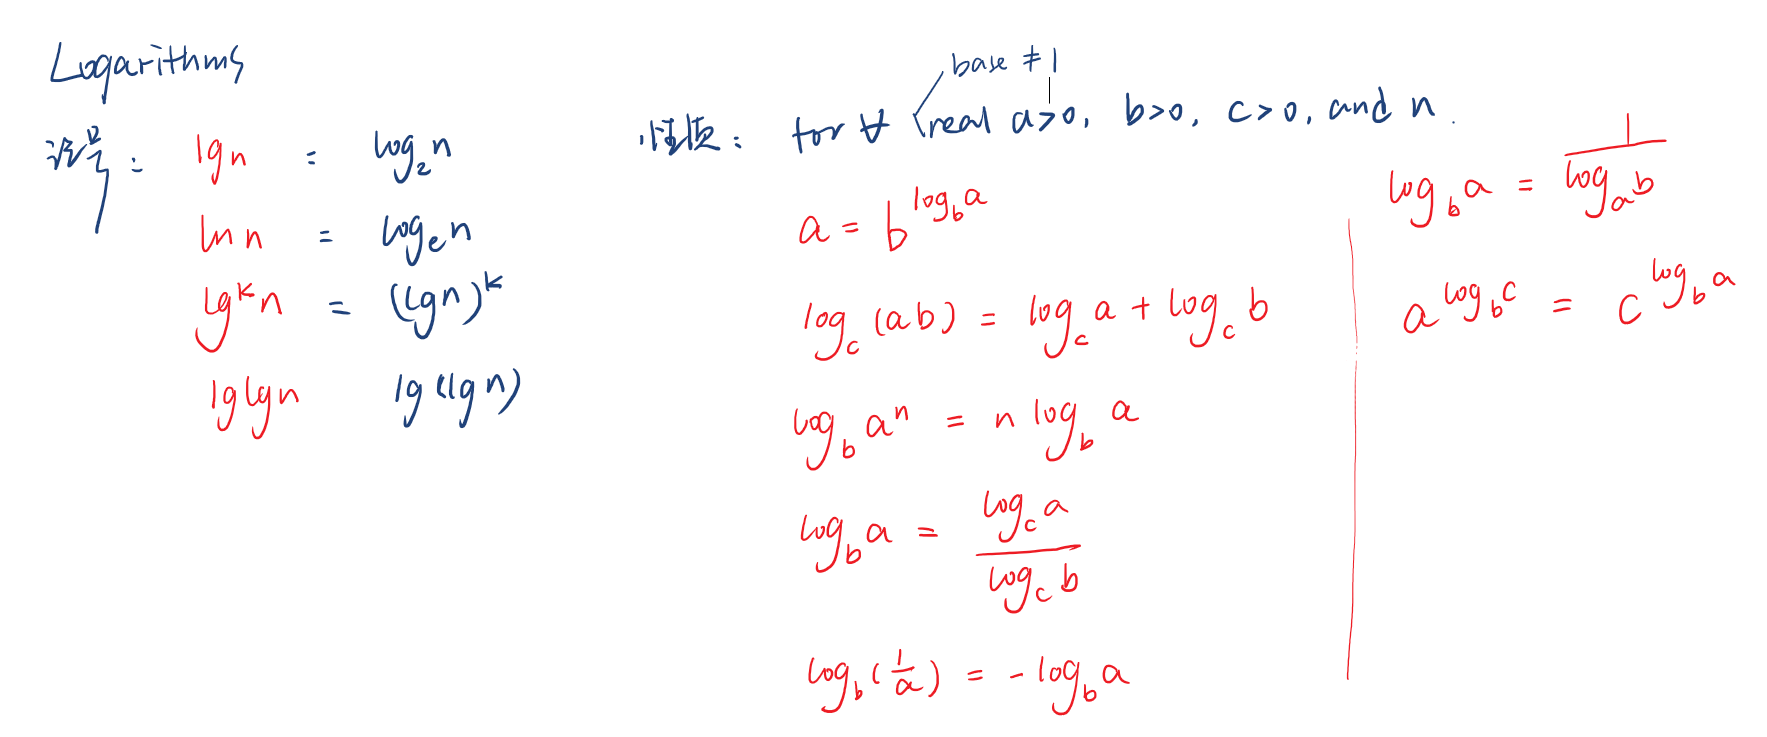 Logarithms
记号: lg n = log₂n
ln n = logₑn
lgᵏn = (lg n)ᵏ
lg lg n lg(lg n)
base ≠ 1
性质: for ∀ (real a>0, b>0, c>0, and n.
a = b^{log_b a}
log_c (ab) = log_c a + log_c b
log_b aⁿ = n log_b a
log_b a = \frac{log_c a}{log_c b}
log_b (\frac{1}{a}) = - log_b a
log_b a = \frac{1}{log_a b}
a^{log_b c} = c^{log_b a}